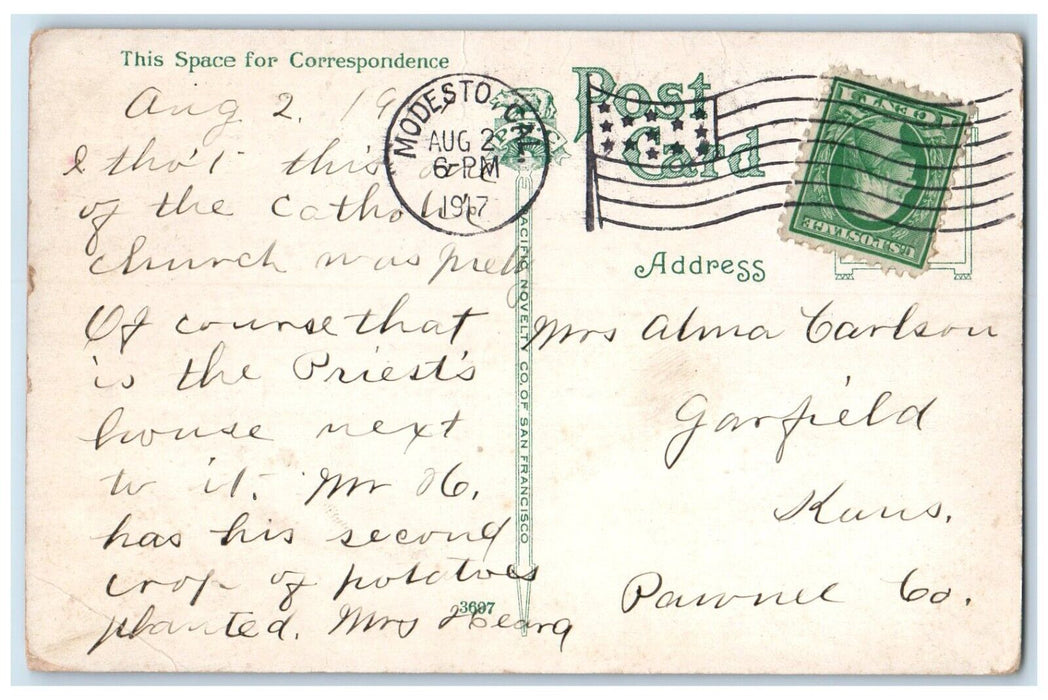 This Space for Correspondence
Post Card
MODESTO, CAL.
AUG 2
6-PM
1917
1 CENT 1
U.S. POSTAGE
Aug 2, 19
I tho't this
of the Catholic
church was prety
Of course that
is the Priest's
house next
to it. Mr H.
has his second
crop of potatoes
planted. Mrs
PACIFIC NOVELTY CO. OF SAN FRANCISCO
3697
Address
Mrs Alma Carlson
Garfield
Kans.
Pawnee Co.